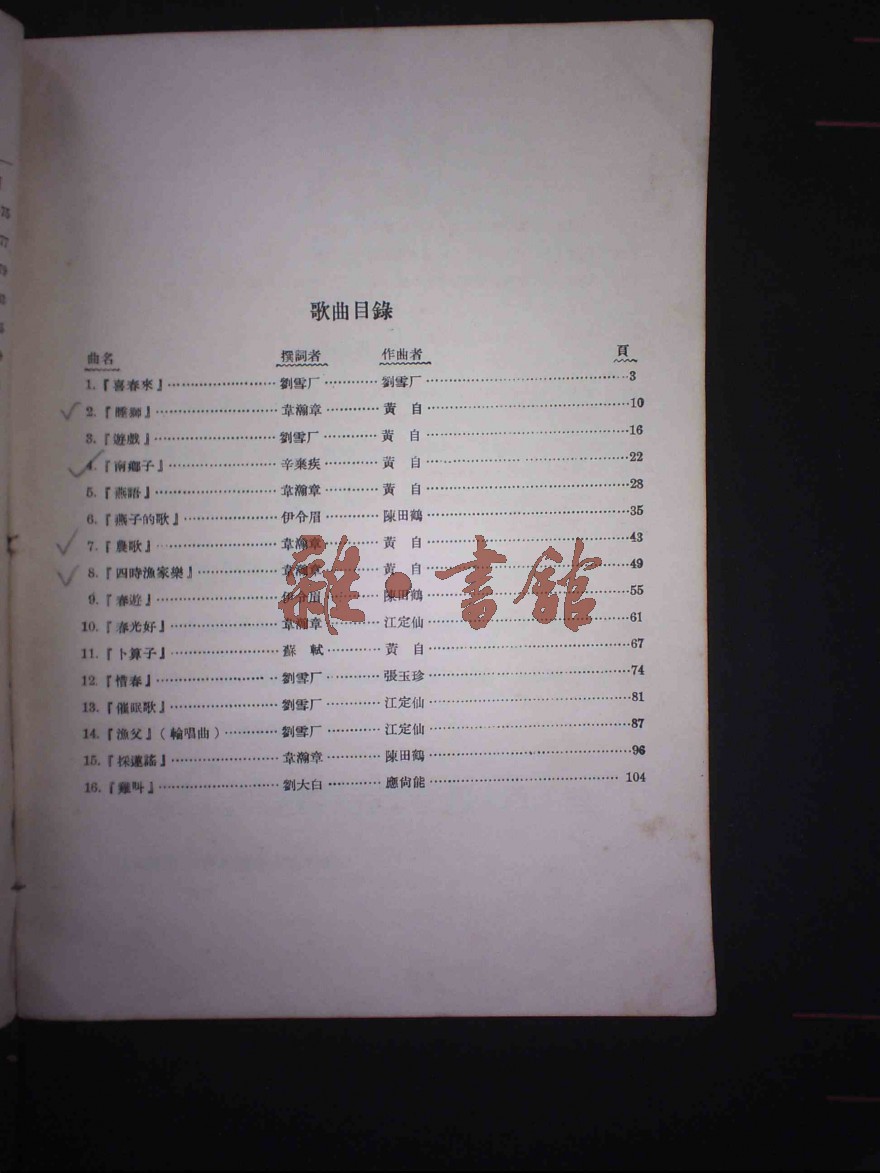 歌曲目錄
曲名 撰詞者 作曲者 頁
1.『喜春來』 劉雪厂 劉雪厂 3
2.『睡獅』 韋瀚章 黃自 10
3.『遊戲』 劉雪厂 黃自 16
4.『南鄉子』 辛棄疾 黃自 22
5.『燕語』 韋瀚章 黃自 28
6.『燕子的歌』 伊令眉 陳田鶴 35
7.『農歌』 韋瀚章 黃自 43
8.『四時漁家樂』 韋瀚章 黃自 49
9.『春遊』 伊令眉 陳田鶴 55
10.『春光好』 韋瀚章 江定仙 61
11.『卜算子』 蘇軾 黃自 67
12.『惜春』 劉雪厂 張玉珍 74
13.『催眠歌』 劉雪厂 江定仙 81
14.『漁父』(輪唱曲) 劉雪厂 江定仙 87
15.『採蓮謠』 韋瀚章 陳田鶴 96
16.『雞叫』 劉大白 應尚能 104
雜·書館
75
77
79